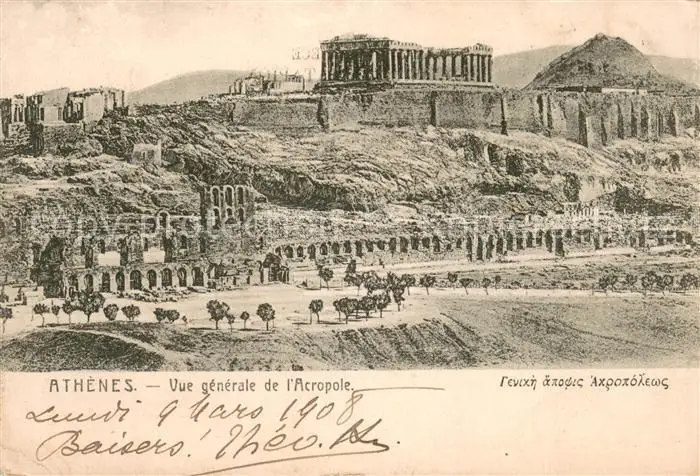 ATHÈNES. — Vue générale de l'Acropole.
Γενικὴ ἄποψις Ἀκροπόλεως
Lundi 9 Mars 1908
Baisers! Théo.